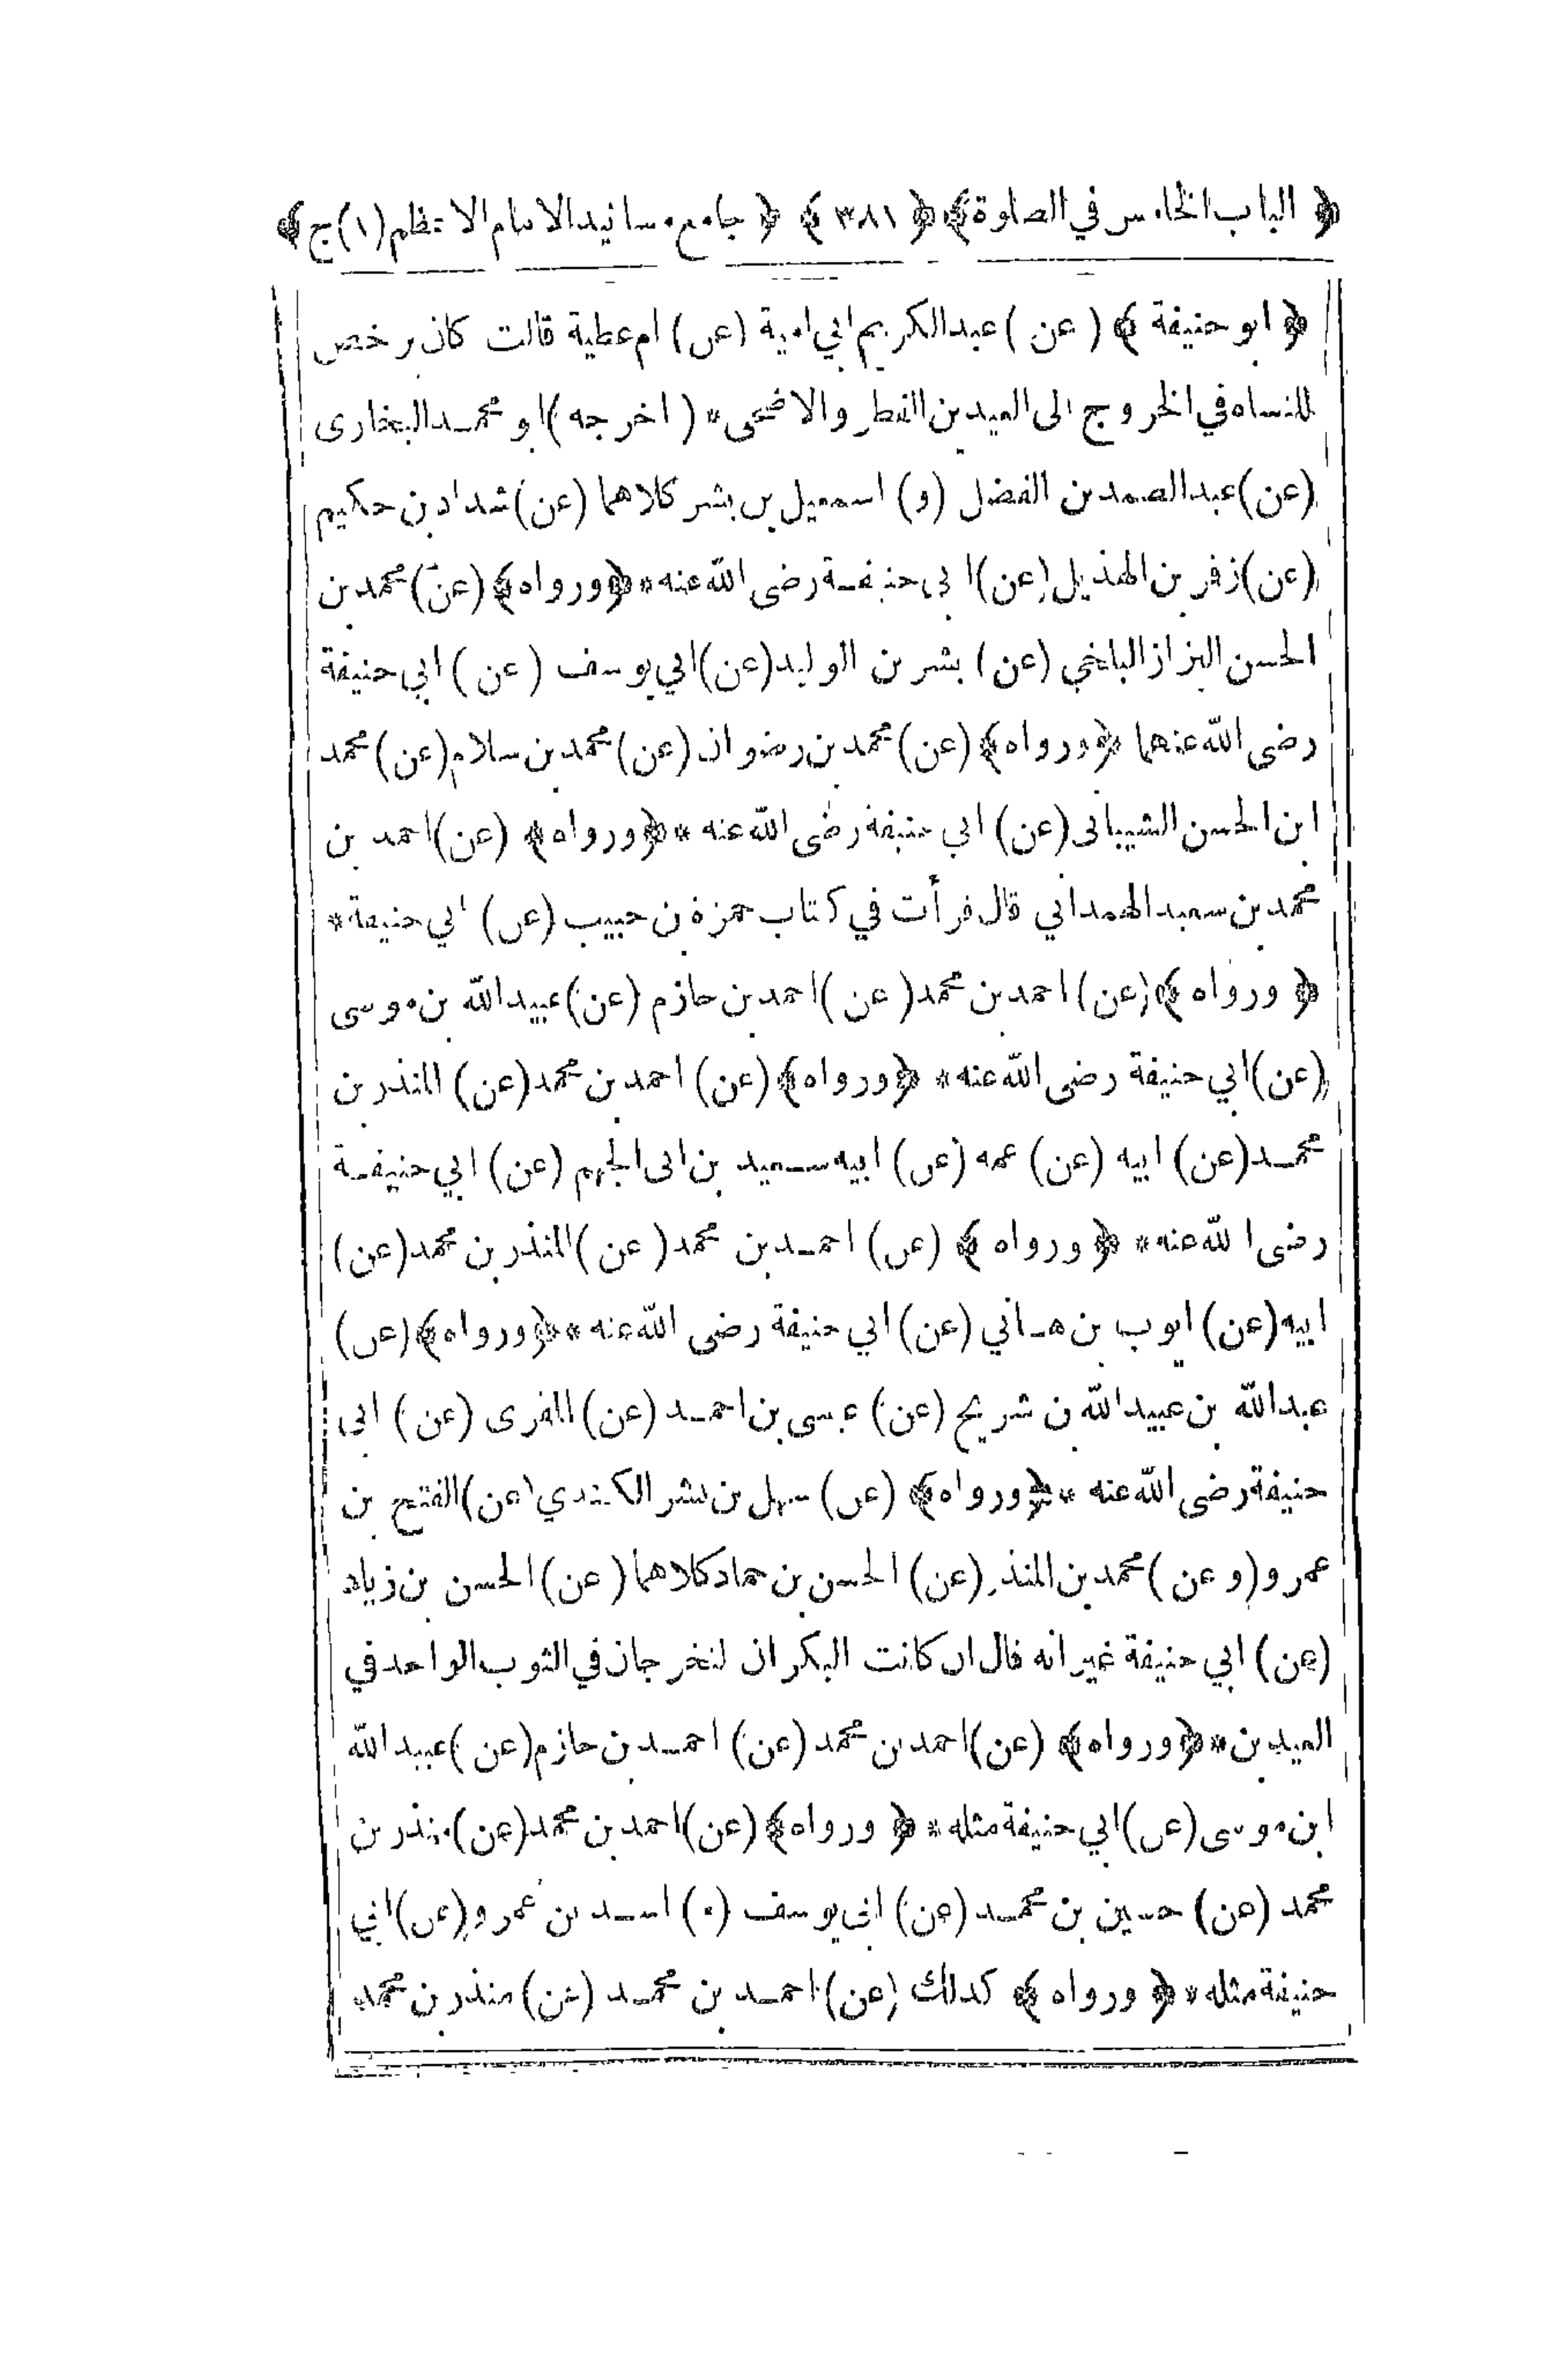 ﴿ الباب الخامس في الصلوة ﴾ ﴿ ٣٨١ ﴾ ﴿ جامع مسانيد الامام الاعظم (١) ج ﴾
﴿ ابو حنيفة ﴾ ( عن ) عبد الكريم ابي امية (عن) ام عطية قالت كان يرخص
للنساء في الخروج الى العيدين الفطر والاضحى * ( اخرجه ) ابو محمد البخارى
(عن) عبد الصمد بن الفضل (و) اسمعيل بن بشر كلاهما (عن) شداد بن حكيم
(عن) زفر بن الهذيل (عن) ابى حنيفة رضى الله عنه * ﴿ ورواه ﴾ (عن) محمد بن
الحسن البزاز البلخي (عن) بشر بن الوليد (عن) ابي يوسف ( عن ) ابي حنيفة
رضى الله عنهما ﴿ ورواه ﴾ (عن) محمد بن رضوان (عن) محمد بن سلام (عن) محمد
ابن الحسن الشيبانى (عن) ابي حنيفة رضى الله عنه * ﴿ ورواه ﴾ (عن) احمد بن
محمد بن سعيد الهمداني قال قرأت في كتاب حمزة بن حبيب (عن) ابي حنيفة *
﴿ ورواه ﴾ (عن) احمد بن محمد ( عن ) احمد بن حازم (عن) عبيد الله بن موسى
(عن) ابي حنيفة رضى الله عنه * ﴿ ورواه ﴾ (عن) احمد بن محمد (عن) المنذر بن
محمد (عن) ابيه (عن) عمه (عن) ابيه سعيد بن ابى الجهم (عن) ابي حنيفة
رضى الله عنه * ﴿ ورواه ﴾ (عن) احمد بن محمد ( عن ) المنذر بن محمد (عن)
ابيه (عن) ايوب بن هاني (عن) ابي حنيفة رضى الله عنه * ﴿ ورواه ﴾ (عن)
عبد الله بن عبيد الله بن شريح (عن) عيسى بن احمد (عن) المقرى (عن) ابى
حنيفة رضى الله عنه * ﴿ ورواه ﴾ (عن) سهل بن بشر الكندي (عن) الفتح بن
عمرو (و عن ) محمد بن المنذر (عن) الحسن بن حماد كلاهما ( عن ) الحسن بن زياد
(عن) ابي حنيفة غير انه قال ان كانت البكران لتخرجان في الثوب الواحد في
العيدين * ﴿ ورواه ﴾ (عن) احمد بن محمد (عن) احمد بن حازم (عن ) عبيد الله
ابن موسى (عن) ابي حنيفة مثله * ﴿ ورواه ﴾ (عن) احمد بن محمد (عن) منذر بن
محمد (عن) حسين بن محمد (عن) ابى يوسف (و) اسد بن عمرو (عن) ابي
حنيفة مثله * ﴿ ورواه ﴾ كذلك (عن) احمد بن محمد (عن) منذر بن محمد